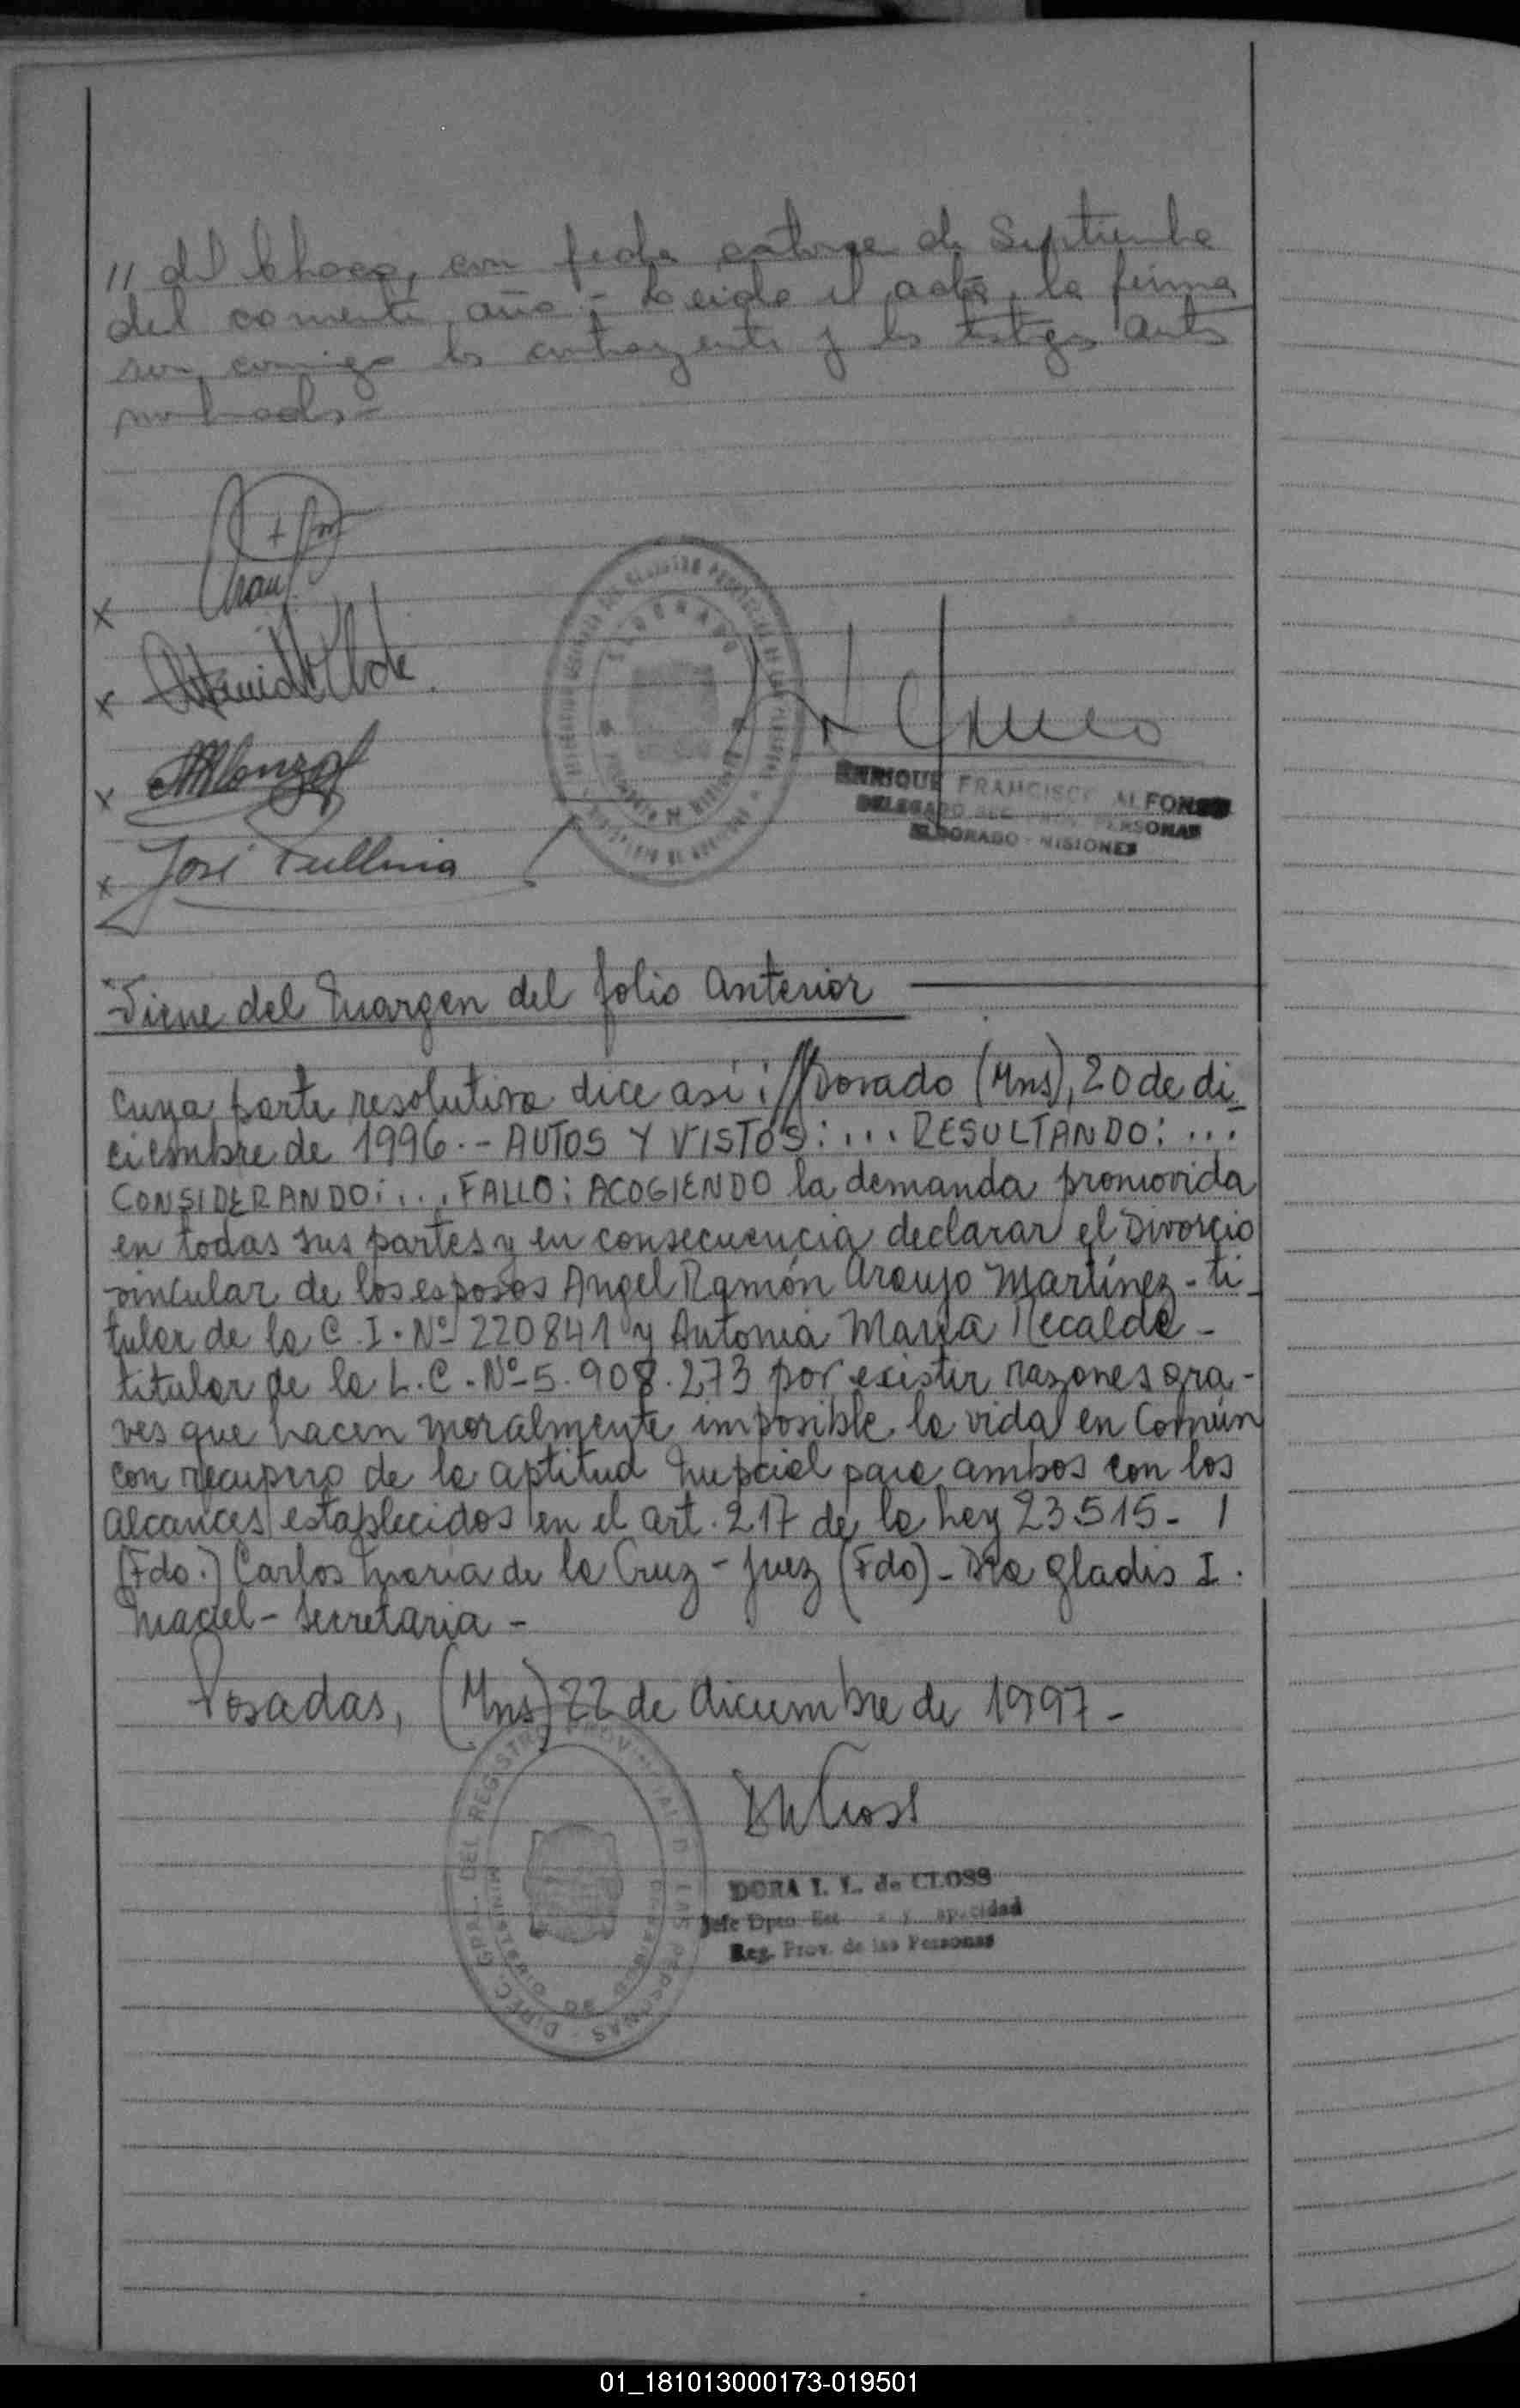 // del Chaco, con fecha catorce de Septiembre
del corriente año.- Leida el acta, la firma
ron conmigo los contrayentes y los testigos antes
nombrados-
x
x
x
x José
ENRIQUE FRANCISCO ALFONSO
DELEGADO REG. PROV. PERSONAS
ELDORADO - MISIONES
Viene del margen del folio anterior
Cuya parte resolutiva dice asi: //Dorado (Mns), 20 de di-
ciembre de 1996.- AUTOS Y VISTOS: ... RESULTANDO: ...
CONSIDERANDO: ... FALLO: ACOGIENDO la demanda promovida
en todas sus partes y en consecuencia declarar el Divorcio
vincular de los esposos Angel Ramón Araujo Martínez - ti-
tular de la C.I. Nº 220841 y Antonia María Recalde -
titular de la L.C. Nº 5.908.273 por existir razones gra-
ves que hacen moralmente imposible la vida en Común
con recupero de la aptitud nupcial para ambos con los
alcances establecidos en el art. 217 de la Ley 23515- /
(Fdo.) Carlos María de la Cruz - Juez (Fdo) - Dra Gladis I.
Maciel - secretaria -
Posadas, (Mns) 22 de diciembre de 1997-
DORA I. L. de CLOSS
Jefe Dpto. Est y apacidad
Reg. Prov. de las Personas
DIREC. GRAL. DEL REGISTRO PROVINCIAL DE LAS PERSONAS
01_181013000173-019501